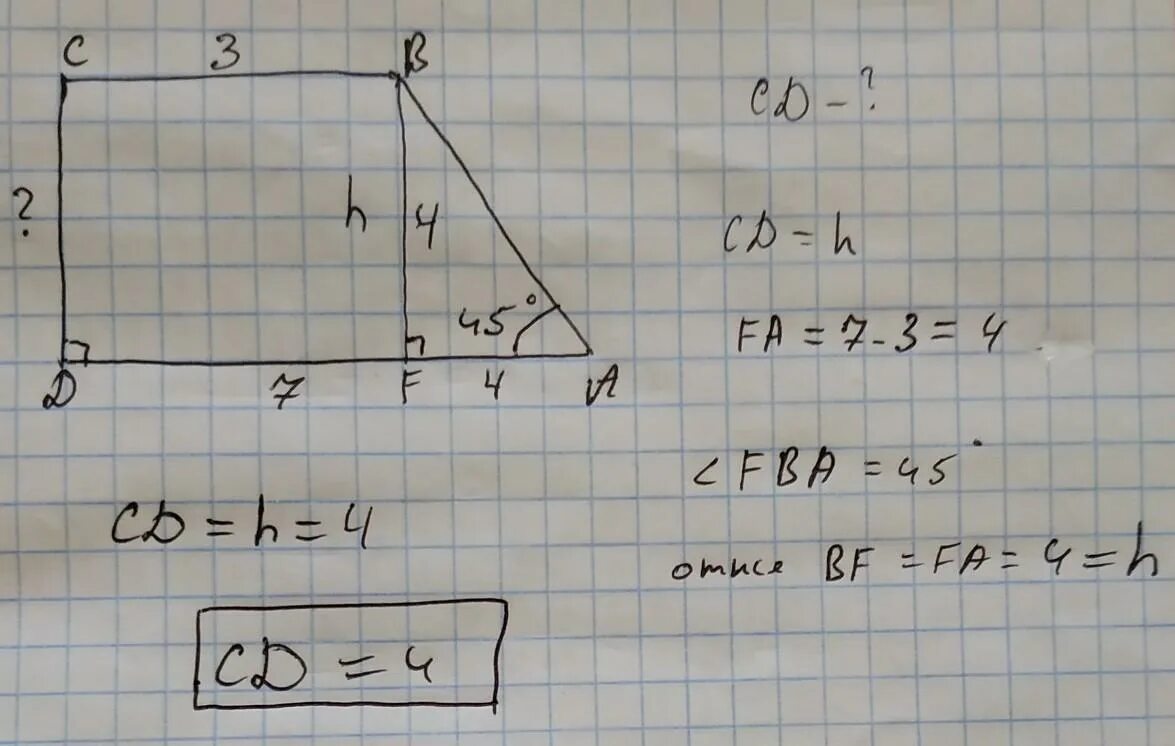 C 3 B
CD - ?
? h 4
CD = h
45°
D 7 F 4 A
FA = 7 - 3 = 4
< FBA = 45°
CD = h = 4
отже BF = FA = 4 = h
CD = 4